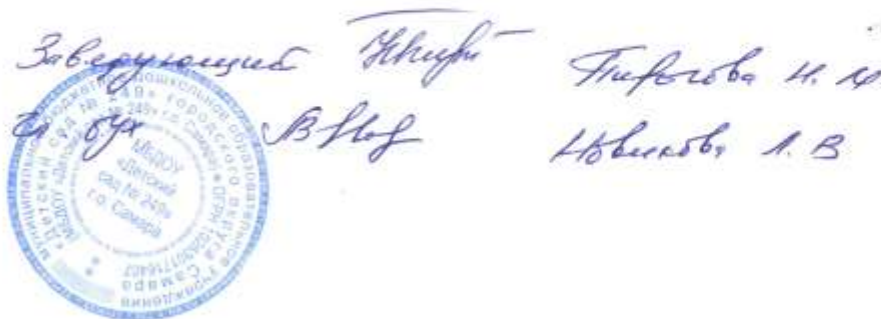 Заведующий Пирогова Н. М
Гл бух Новикова Л. В
муниципальное бюджетное дошкольное образовательное учреждение
«Детский сад № 249» городского округа Самара
(МБДОУ «Детский сад № 249» г.о. Самара)
МБДОУ
«Детский
сад № 249»
г.о. Самара